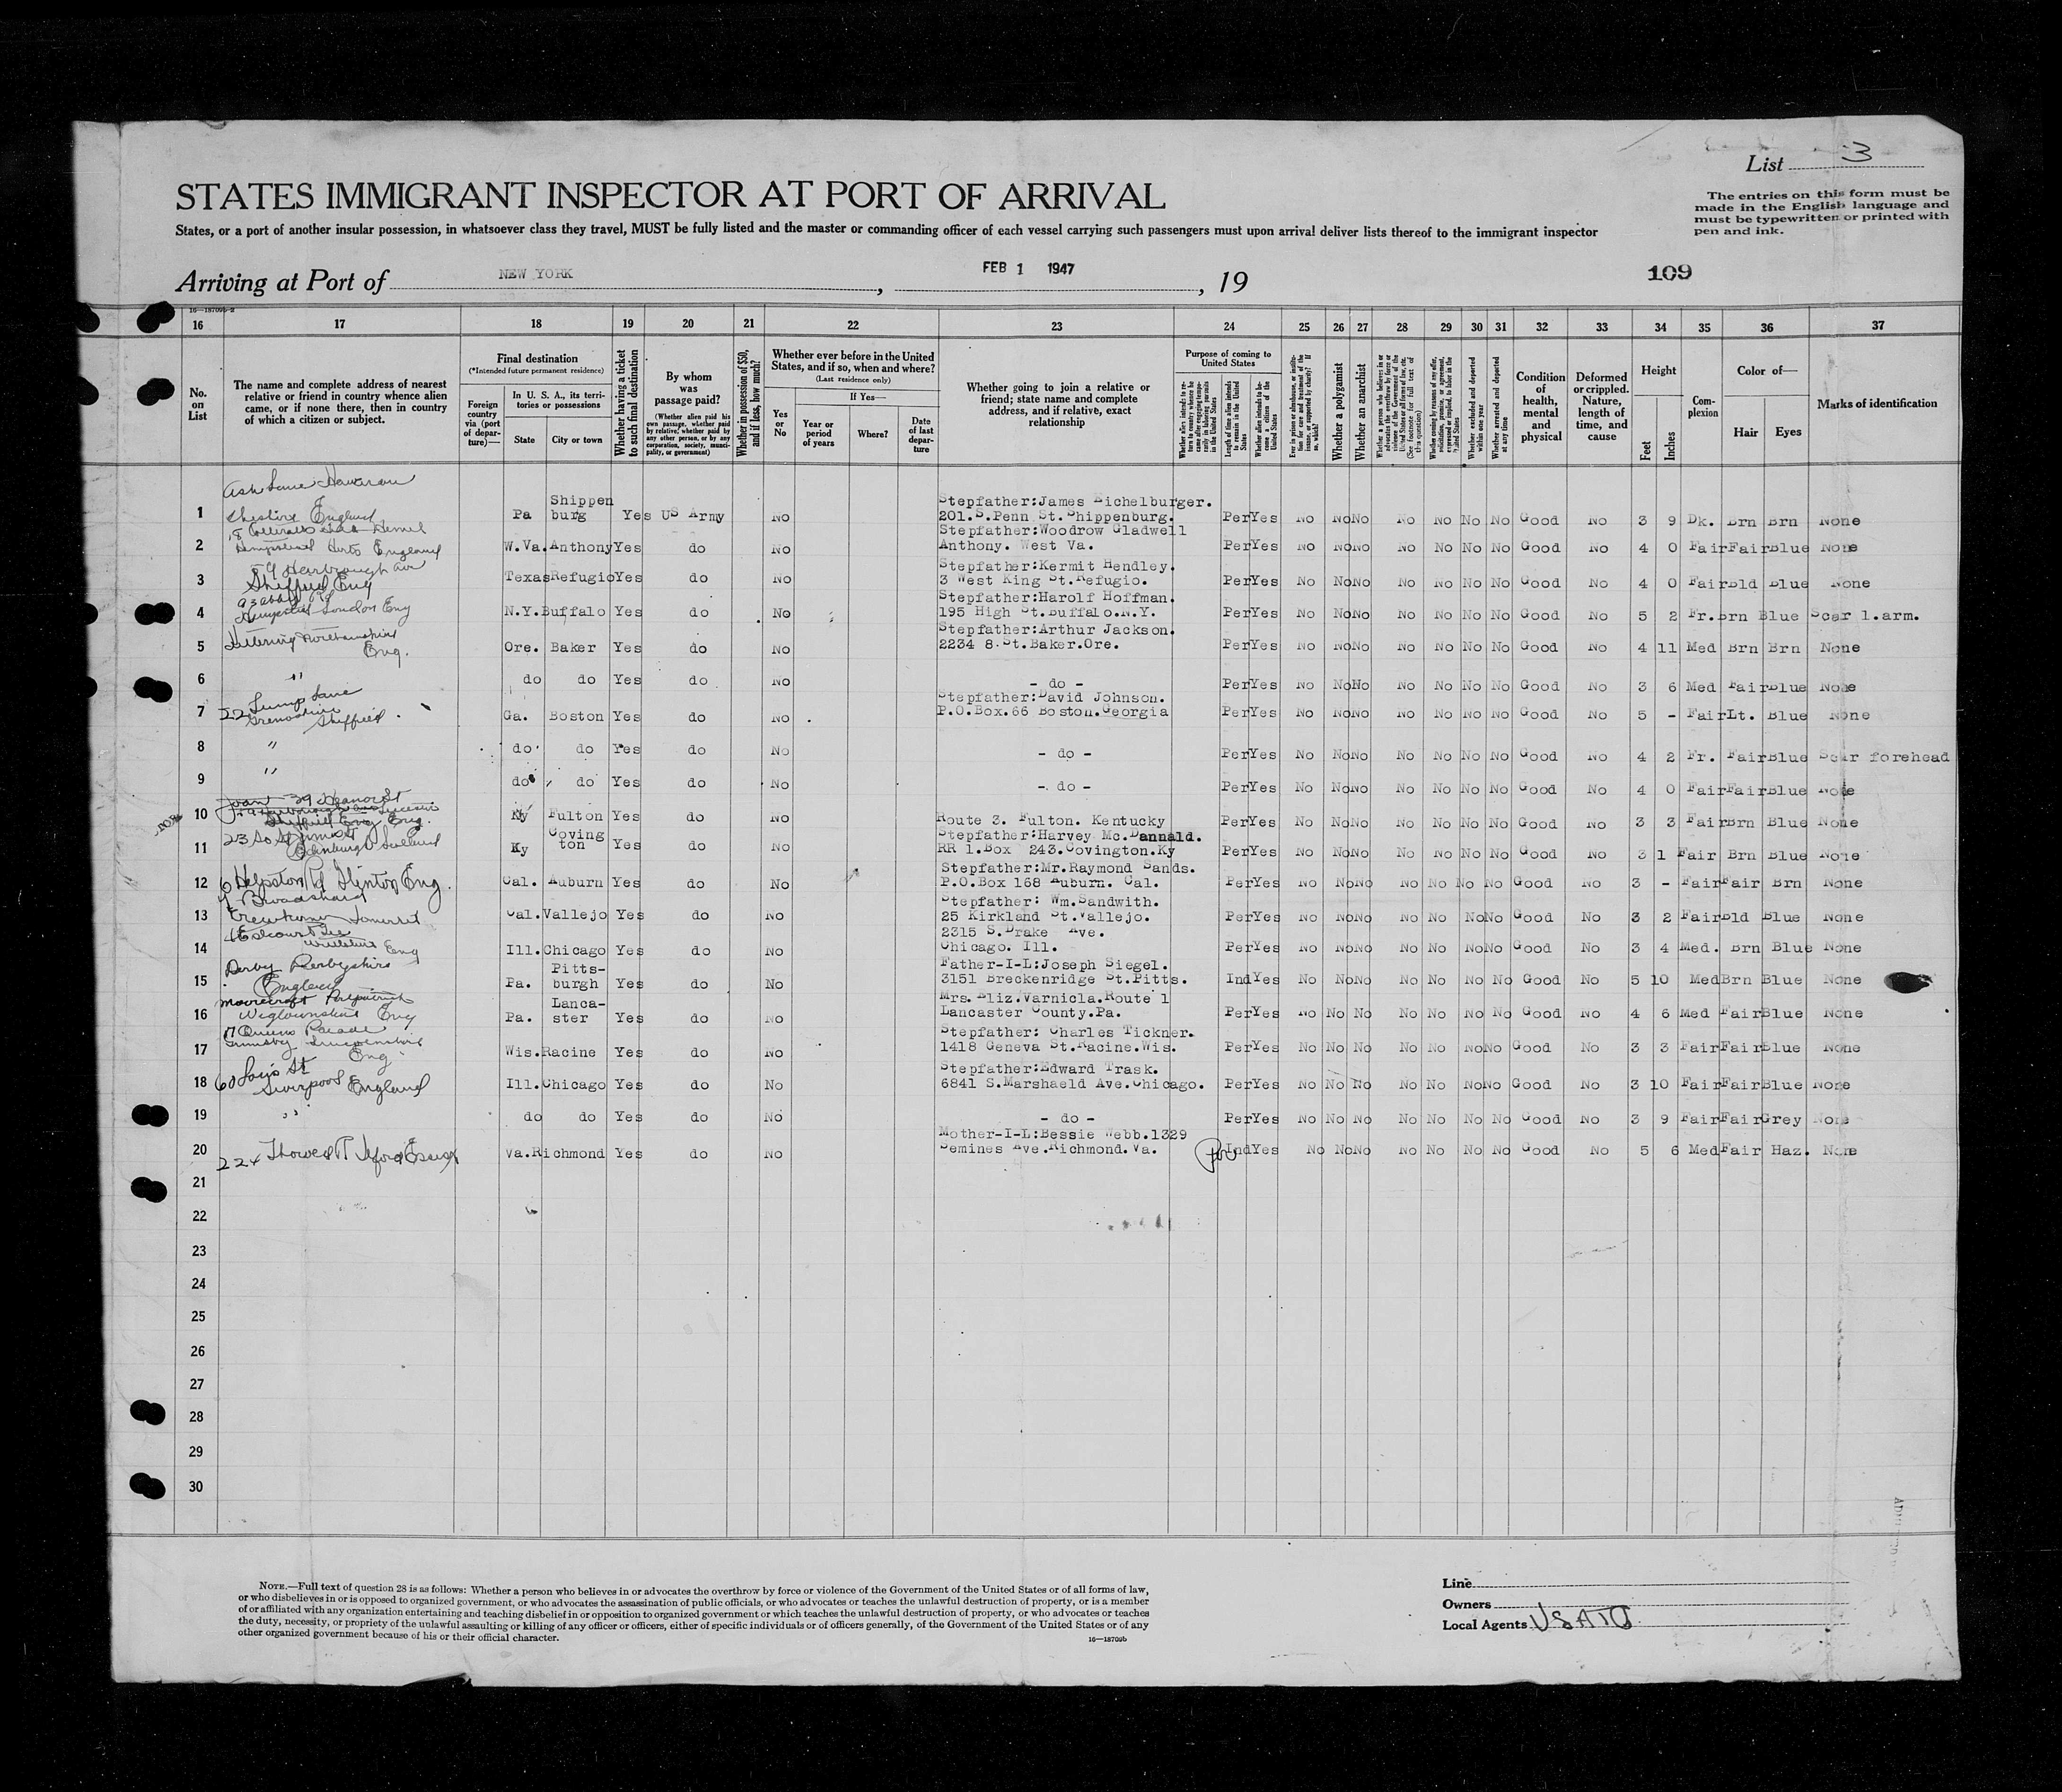 List 3
STATES IMMIGRANT INSPECTOR AT PORT OF ARRIVAL
The entries on this form must be
made in the English language and
must be typewritten or printed with
pen and ink.
States, or a port of another insular possession, in whatsoever class they travel, MUST be fully listed and the master or commanding officer of each vessel carrying such passengers must upon arrival deliver lists thereof to the immigrant inspector
Arriving at Port of NEW YORK, FEB 1 1947, 19
109
16—18709b-2
16 17 18 19 20 21 22 23 24 25 26 27 28 29 30 31 32 33 34 35 36 37
No. on List
The name and complete address of nearest
relative or friend in country whence alien
came, or if none there, then in country
of which a citizen or subject.
Final destination
(*Intended future permanent residence)
Foreign country via (port of departure)—
In U. S. A., its territories or possessions
State City or town
Whether having a ticket to such final destination
By whom was passage paid?
(Whether alien paid his own passage, whether paid by relative, whether paid by any other person, or by any corporation, society, municipality, or government)
Whether in possession of $50, and if less, how much?
Whether ever before in the United States, and if so, when and where?
(Last residence only)
Yes or No
If Yes—
Year or period of years
Where?
Date of last departure
Whether going to join a relative or
friend; state name and complete
address, and if relative, exact
relationship
Purpose of coming to United States
Length of time alien intends to remain in the United States
Whether alien intends to become a citizen of the United States
Whether a polygamist
Whether an anarchist
Whether excluded and deported within one year
Whether arrested and deported at any time
Condition of health, mental and physical
Deformed or crippled. Nature, length of time, and cause
Height
Feet Inches
Complexion
Color of—
Hair Eyes
Marks of identification
Cheshire England
1 Pa Shippen burg Yes US Army No Stepfather:James Eichelburger. 201.S.Penn St.Shippenburg. Per Yes No No No No No No No Good No 3 9 Dk. Brn Brn None
Hempstead Herts England
2 W.Va. Anthony Yes do No Stepfather:Woodrow Gladwell Anthony. West Va. Per Yes No No No No No No No Good No 4 0 Fair Fair Blue None
Sheffield Eng
3 Texas Refugio Yes do No Stepfather:Kermit Hendley. 3 West King St.Refugio. Per Yes No No No No No No No Good No 4 0 Fair Bld Blue None
London Eng
4 N.Y. Buffalo Yes do No Stepfather:Harolf Hoffman. 195 High St.Buffalo.N.Y. Per Yes No No No No No No No Good No 5 2 Fr. Brn Blue Scar l.arm.
Eng.
5 Ore. Baker Yes do No Stepfather:Arthur Jackson. 2234 8.St.Baker.Ore. Per Yes No No No No No No No Good No 4 11 Med Brn Brn None
6 " do do Yes do No - do - Per Yes No No No No No No No Good No 3 6 Med Fair Blue None
Sheffield.
7 Ga. Boston Yes do No Stepfather:David Johnson. P.O.Box.66 Boston.Georgia Per Yes No No No No No No No Good No 5 - Fair Lt. Blue None
8 " do do Yes do No - do - Per Yes No No No No No No No Good No 4 2 Fr. Fair Blue Scar forehead
9 " do do Yes do No - do - Per Yes No No No No No No No Good No 4 0 Fair Fair Blue None
10 Ky Fulton Yes do No Route 3. Fulton. Kentucky Per Yes No No No No No No No Good No 3 3 Fair Brn Blue None
Edinburgh Scotland
11 Ky Coving ton Yes do No Stepfather:Harvey Mc.Dannald. RR 1.Box 243.Covington.Ky Per Yes No No No No No No No Good No 3 1 Fair Brn Blue None
12 Cal. Auburn Yes do No Stepfather:Mr.Raymond Sands. P.O.Box 168 Auburn. Cal. Per Yes No No No No No No No Good No 3 - Fair Fair Brn None
13 Cal. Vallejo Yes do No Stepfather: Wm.Sandwith. 25 Kirkland St.Vallejo. Per Yes No No No No No No No Good No 3 2 Fair Bld Blue None
14 Ill. Chicago Yes do No 2315 S.Drake Ave. Chicago. Ill. Per Yes No No No No No No No Good No 3 4 Med. Brn Blue None
Derby Derbyshire England
15 Pa. Pitts- burgh Yes do No Father-I-L:Joseph Siegel. 3151 Breckenridge St.Pitts. Ind Yes No No No No No No No Good No 5 10 Med Brn Blue None
Wigtownshire Eng
16 Pa. Lanca- ster Yes do No Mrs. Eliz.Varnicla.Route 1 Lancaster County.Pa. Per Yes No No No No No No No Good No 4 6 Med Fair Blue None
Eng
17 Wis. Racine Yes do No Stepfather: Charles Tickner. 1418 Geneva St.Racine.Wis. Per Yes No No No No No No No Good No 3 3 Fair Fair Blue None
Liverpool England
18 Ill. Chicago Yes do No Stepfather:Edward Trask. 6841 S.Marshaeld Ave.Chicago. Per Yes No No No No No No No Good No 3 10 Fair Fair Blue None
19 " do do Yes do No - do - Per Yes No No No No No No No Good No 3 9 Fair Fair Grey None
20 Va. Richmond Yes do No Mother-I-L:Bessie Webb.1329 Semines Ave.Richmond.Va. Ind Yes No No No No No No No Good No 5 6 Med Fair Haz. None
21
22
23
24
25
26
27
28
29
30
NOTE.—Full text of question 28 is as follows: Whether a person who believes in or advocates the overthrow by force or violence of the Government of the United States or of all forms of law,
or who disbelieves in or is opposed to organized government, or who advocates the assassination of public officials, or who advocates or teaches the unlawful destruction of property, or is a member
of or affiliated with any organization entertaining and teaching disbelief in or opposition to organized government or which teaches the unlawful destruction of property, or who advocates or teaches
the duty, necessity, or propriety of the unlawful assaulting or killing of any officer or officers, either of specific individuals or of officers generally, of the Government of the United States or of any
other organized government because of his or their official character.
16—18709b
Line
Owners
Local Agents USATS